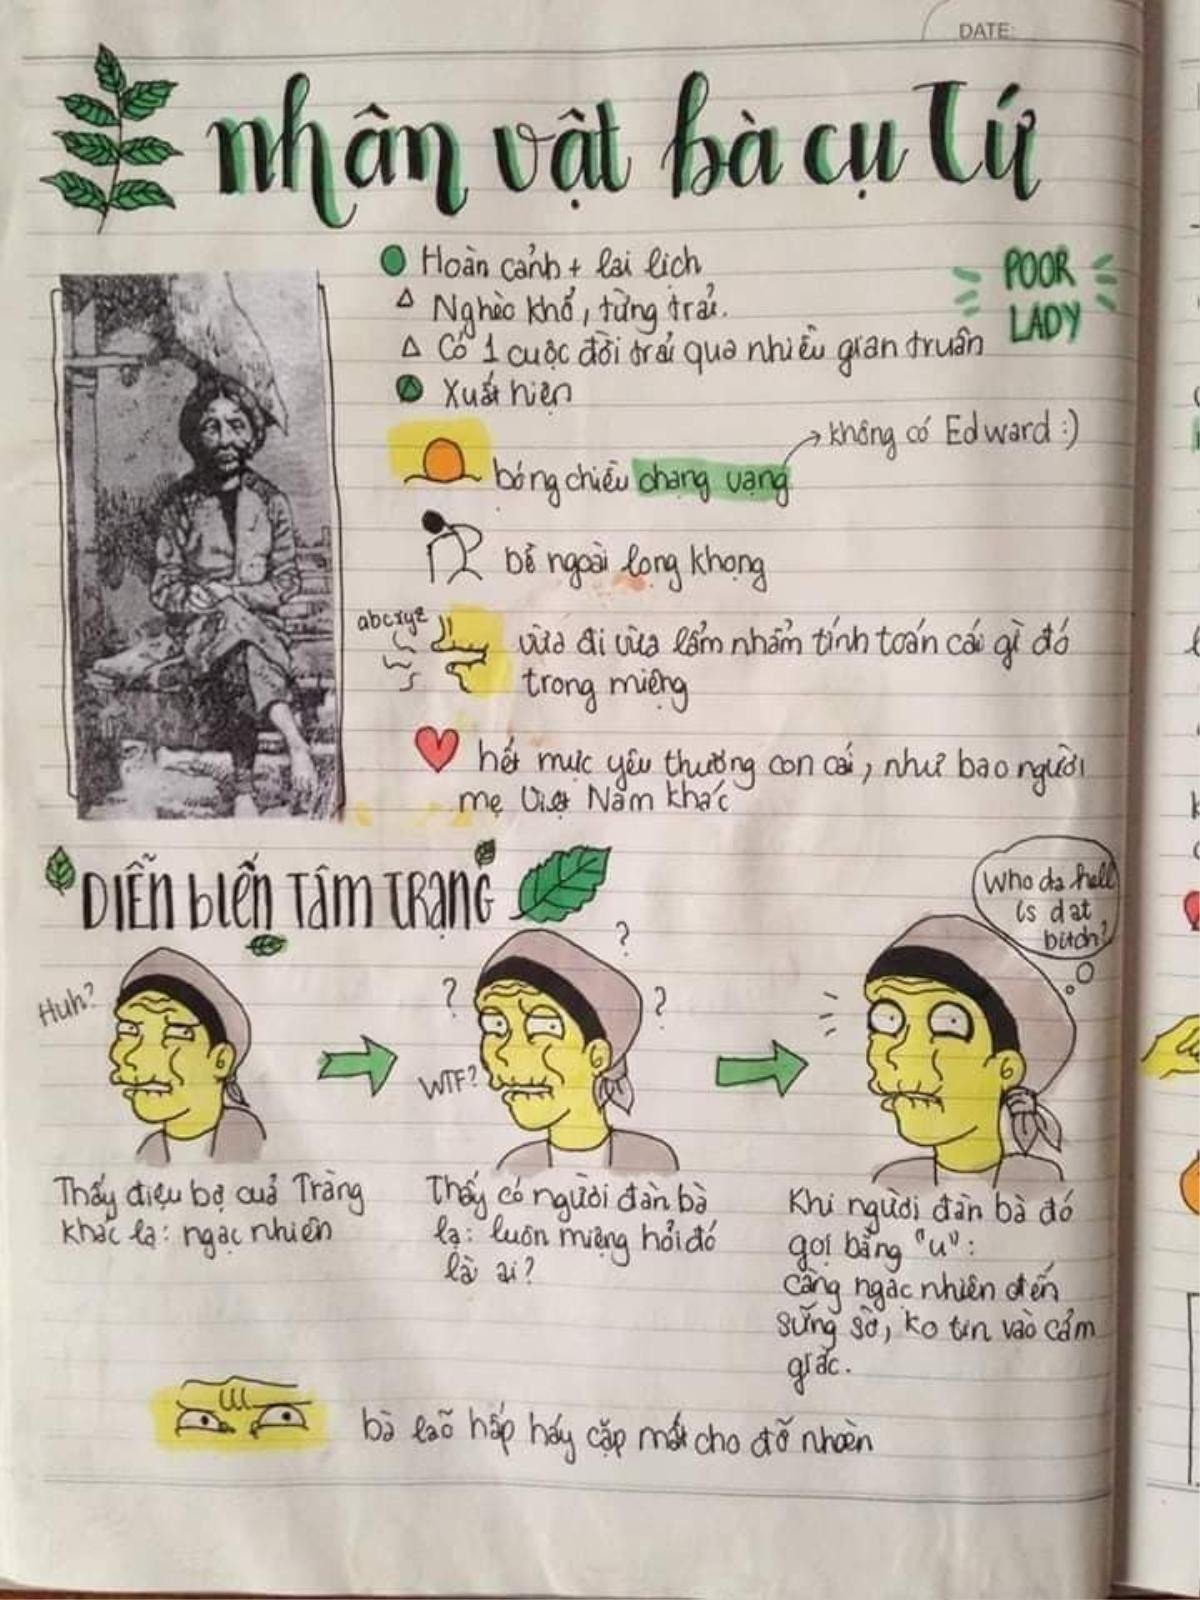 DATE:
nhân vật bà cụ Tứ
Hoàn cảnh + lai lịch
POOR
LADY
Nghèo khổ, từng trải.
Có 1 cuộc đời trải qua nhiều gian truân
Xuất hiện
không có Edward :)
bóng chiều chạng vạng
bề ngoài lọng khọng
abcxyz
vừa đi vừa lẩm nhẩm tính toán cái gì đó
trong miệng
hết mực yêu thương con cái, như bao người
mẹ Việt Nam khác
DIỄN biến TâM TRẠNG
Who da hell
is dat
bitch?
Huh?
?
?
?
WTF?
Thấy điệu bộ của Tràng
khác lạ: ngạc nhiên
Thấy có người đàn bà
lạ: luôn miệng hỏi đó
là ai?
Khi người đàn bà đó
gọi bằng "u":
càng ngạc nhiên đến
sững sờ, ko tin vào cảm
giác.
bà lão hấp háy cặp mắt cho đỡ nhoèn